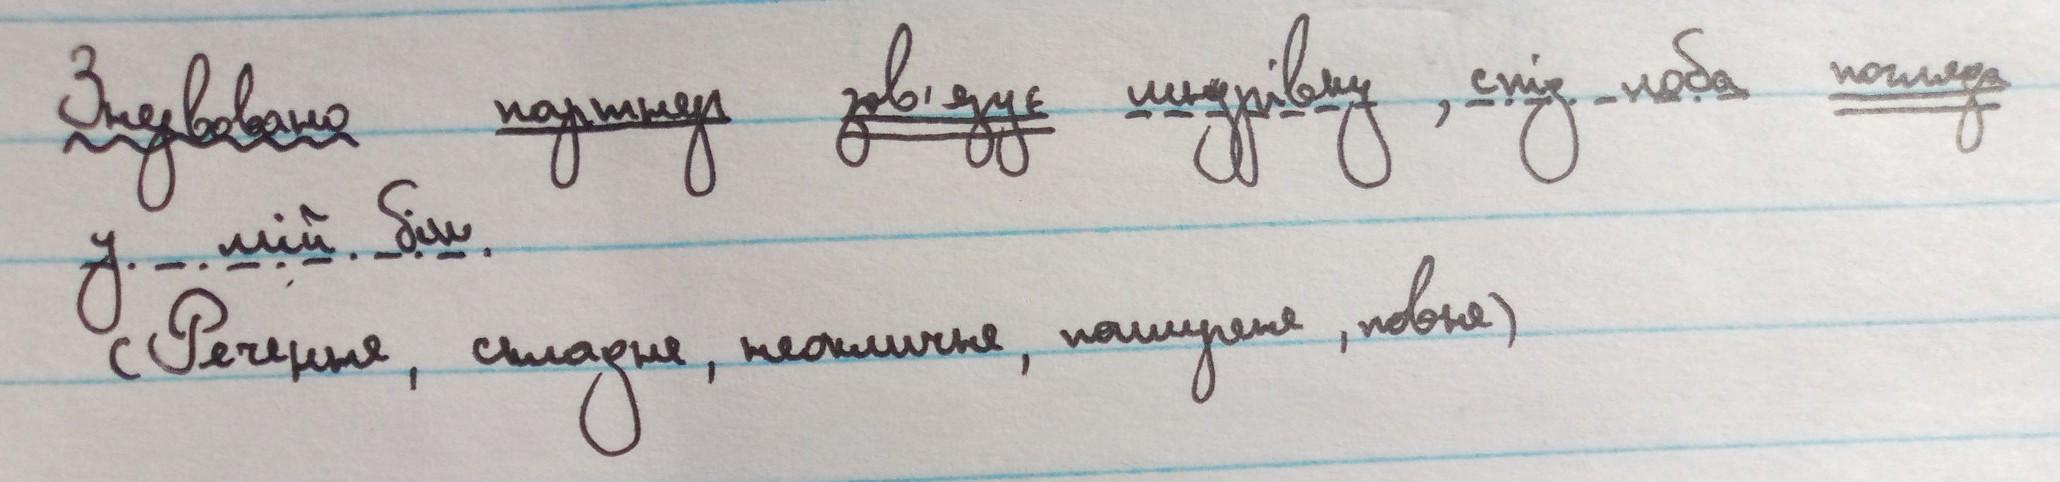 Знервовано партнер зав'язує шнурівку, спід лоба погляда
у мій бік.
(Речення, складне, неокличне, поширене, повне)